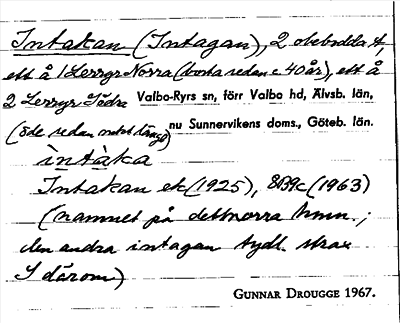 Intakan (Intagan), 2 obebodda t,
ett å 1 Lerryr Norra (borta sedan c 40 år), ett å
2 Lerryr Södra Valbo-Ryrs sn, förr Valbo hd, Älvsb. län,
(öde sedan mkt länge) nu Sunnervikens doms., Göteb. län.
ìntàka
Intakan ek (1925), 8B9c (1963)
(namnet på dett norra hmn.;
den andra intagan tydl. strax
S därom)
GUNNAR DROUGGE 1967.